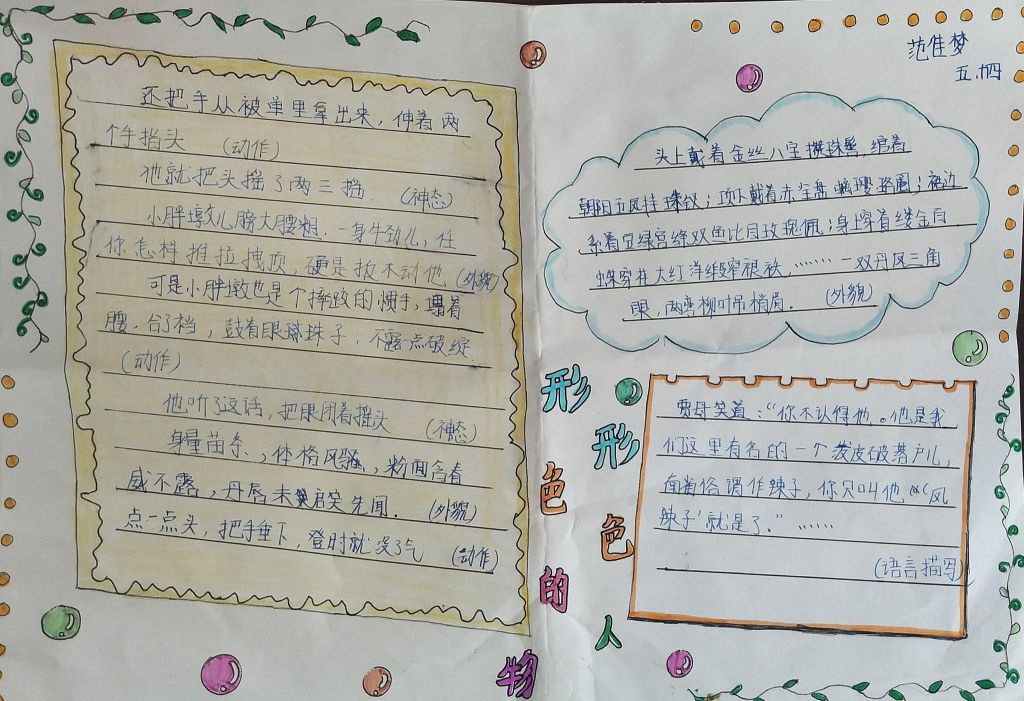 还把手从被单里拿出来，伸着两
个手指头 (动作)
他就把头摇了两三摇. (神态)
小胖墩儿膀大腰粗，一身牛劲儿，任
你怎样推拉拽顶，硬是扳不动他 (外貌)
可是小胖墩也是个摔跤的惯手，塌着
腰，合了裆，鼓着眼珠子，不露点破绽.
(动作)
他听了这话，把眼闭着摇头 (神态)
身量苗条，体格风骚，粉面含春
威不露，丹唇未启笑先闻. (外貌)
点一点头，把手垂下，登时就没了气 (动作)
形形色色的人物
范佳梦
五.四
头上戴着金丝八宝攒珠髻，绾着
朝阳五凤挂珠钗；项下戴着赤金盘螭璎珞圈；裙边
系着豆绿宫绦双鱼比目玫瑰佩；身上穿着缕金百
蝶穿花大红洋缎窄裉袄，……一双丹凤三角
眼，两弯柳叶吊梢眉. (外貌)
贾母笑道：“你不认得他。他是我
们这里有名的一个泼皮破落户儿，
南省俗谓作辣子，你只叫他“‘凤
辣子’就是了.”……
(语言描写)